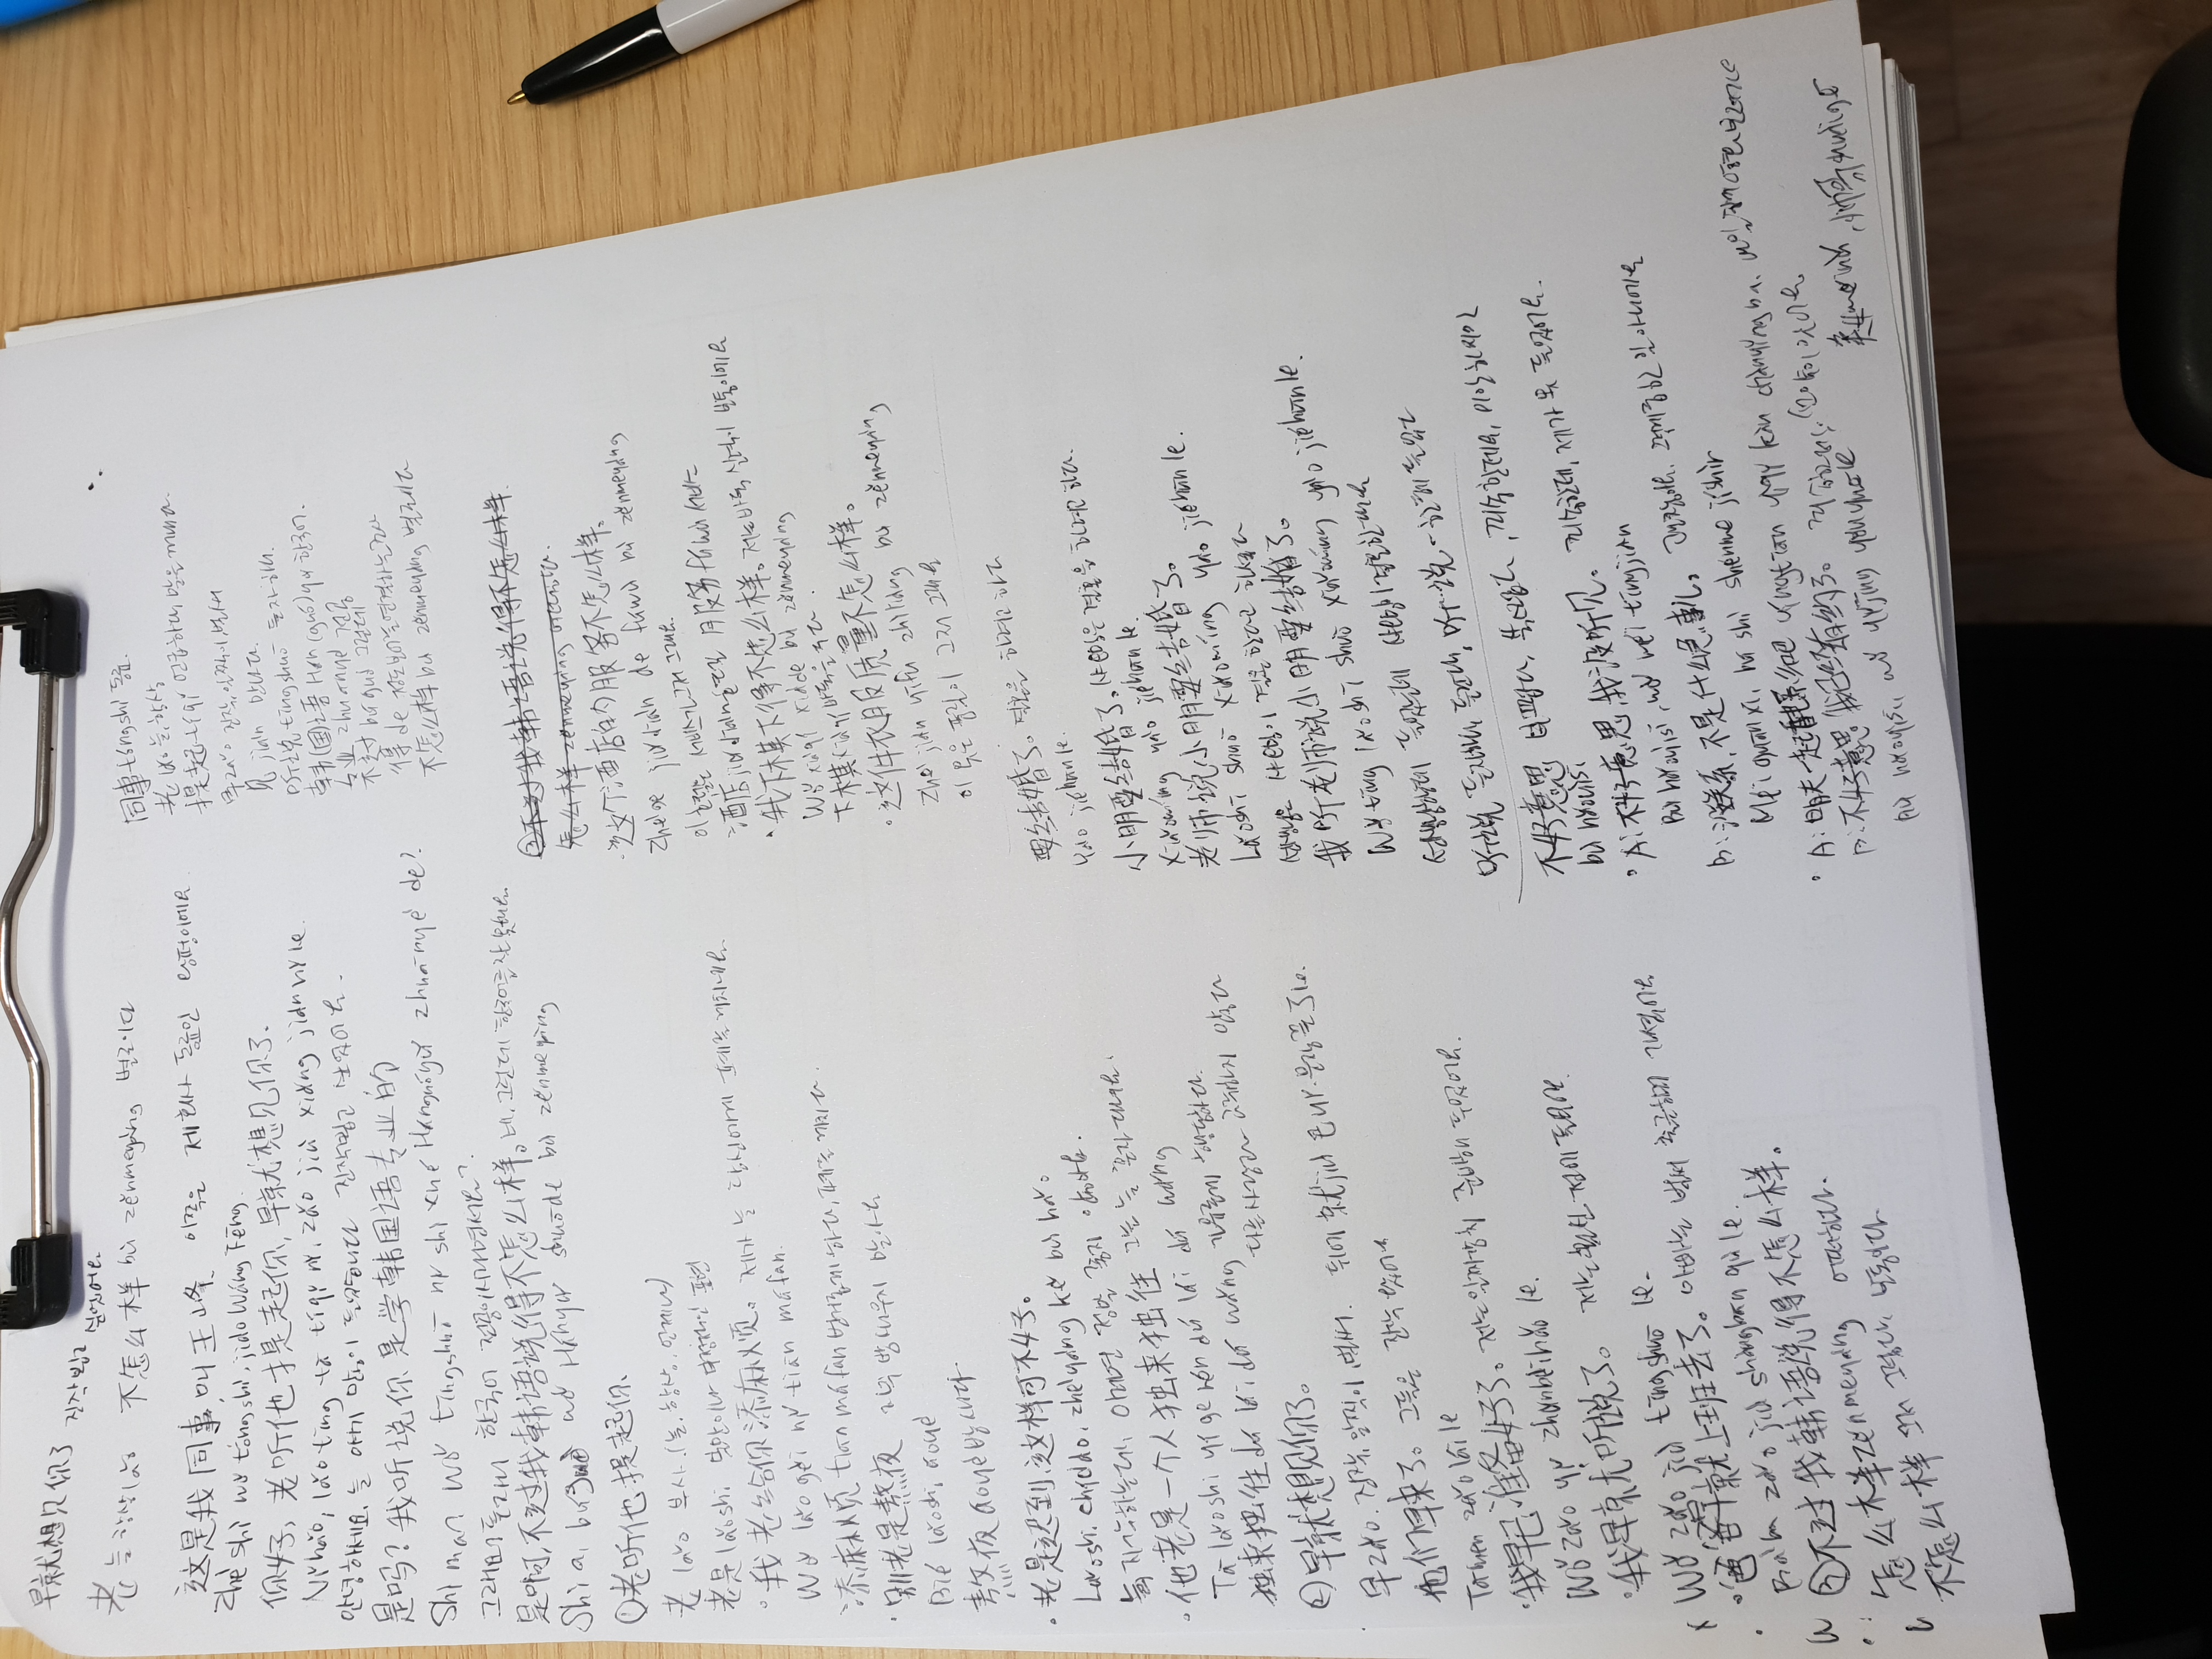 早就想见你了 진작 뵙고 싶었어요
老 늘 항상 lǎo 不怎么样 bù zěnmeyàng 별로이다
这是我同事,叫王峰. 이쪽은 제 회사 동료인 왕펑이에요.
Zhè shì wǒ tóngshì, jiào Wáng Fēng.
你好, 老听他提起你, 早就想见你了.
Nǐ hǎo, lǎo tīng tā tíqǐ nǐ, zǎo jiù xiǎng jiàn nǐ le.
안녕하세요. 늘 얘기 많이 들었습니다 진작 뵙고 싶었어요.
是吗? 我听说你是学韩国语专业的
Shì ma? Wǒ tīngshuō nǐ shì xué Hánguóyǔ zhuānyè de?
그래요? 듣자니 한국어 전공이시라면서요?
是啊, 不过我韩语说得不怎么样。네, 그런데 한국어를 잘 못해요.
Shì a, búguò wǒ Hányǔ shuōde bù zěnmeyàng
①老听他提起你.
老 lǎo 부사.(늘, 항상, 언제나)
老是 lǎoshì 불만이나 부정적인 표현
·我老给你添麻烦。제가 늘 당신에게 폐를 끼치네요.
Wǒ lǎo gěi nǐ tiān máfan.
添麻烦 tiān máfan 번거롭게 하다, 폐를 끼치다.
·别老是熬夜 자꾸 밤새우지 말아요
Bié lǎoshì áoyè
熬夜 áoyè 밤새다.
·老是迟到,这样可不好。
Lǎoshì chídào, zhèyàng kě bù hǎo.
늘 지각하는데, 이러면 정말 좋지 않아요.
·他老是一个人独来独往 그는 늘 혼자 다녀요.
Tā lǎoshì yí ge rén dú lái dú wǎng
独来独往 dú lái dú wǎng 자유롭게 행동하다.
다른사람과 교제하지 않는다
②早就想见你了。
早 zǎo. 진작, 일찍이, 벌써. 뒤에 就 jiù 已 yǐ. 문장끝 了 le.
他们早来了。그들은 진작 왔어요
Tāmen zǎo lái le
·我早已准备好了。저는 일찌감치 준비해 두었어요.
Wǒ zǎo yǐ zhǔnbèihǎo le.
·我早就听说了。저는 훨씬 전에 들었어요.
Wǒ zǎo jiù tīngshuō le.
·爸爸早就上班去了。아빠는 벌써 출근하러 가셨어요
Bàba zǎo jiù shàngbān qù le.
③不过我韩语说得不怎么样。
怎么样 zěnmeyàng 어떠하다.
不怎么样 그저 그렇다, 보통이다.
同事 tóngshì 동료.
老 lǎo 늘, 항상
提起 tíqǐ 언급하다, 말을 꺼내다.
早 zǎo 진작, 일찍이, 벌써
见 jiàn 만나다.
听说 tīngshuō 듣자 하니.
韩(国)语 Hán(guó)yǔ 한국어.
专业 zhuānyè 전공
不过 búguò 그런데
得 de 정도보어를 연결하는 조사
不怎么样 bù zěnmeyàng 별로이다
③不过我韩语说得不怎么样.
怎么样 zěnmeyàng 어떠하다.
·这个酒店的服务不怎么样。
Zhège jiǔdiàn de fúwù bù zěnmeyàng
이 호텔은 서비스가 그저 그래요.
酒店 jiǔdiàn 호텔 服务 fúwù 서비스
·我下棋下得不怎么样。저는 바둑 실력이 보통이에요
Wǒ xiàqí xiàde bù zěnmeyàng
下棋 xiàqí 바둑을 두다.
·这件衣服质量不怎么样。
Zhè jiàn yīfu zhìliàng bù zěnmeyàng
이 옷은 품질이 그저 그래요
要结婚了。결혼을 하려고 하다
Yào jiéhūn le.
小明要结婚了。샤오밍은 결혼을 하려고 하다.
Xiǎomíng yào jiéhūn le.
老师说小明要结婚了。
Lǎoshī shuō Xiǎomíng yào jiéhūn le.
선생님은 샤오밍이 결혼 한다고 하셨다
我听老师说小明要结婚了。
Wǒ tīng lǎoshī shuō Xiǎomíng yào jiéhūn le.
선생님한테 들었는데 샤오밍이 결혼한대요
听说 듣자하니, 듣건대, 听…说 ~한테 듣었다
不好意思 부끄럽다, 쑥스럽다, 죄송한데요, 미안하지만
bù hǎoyìsi
·A: 不好意思,我没听见。죄송한데, 제가 못 들었어요.
Bù hǎoyìsi, wǒ méi tīngjiàn
B: 没关系,不是什么急事儿。괜찮아요. 그렇게 급한 일 아니에요
Méi guānxi, bú shì shénme jíshìr
·A: 明天一起看电影吧 Míngtiān yìqǐ kàn diànyǐng ba.
B: 不好意思 我已经有约了。
Bù hǎoyìsi, wǒ yǐjīng yǒuyuē le
美女 měinǚ, 帅哥 shuàigē